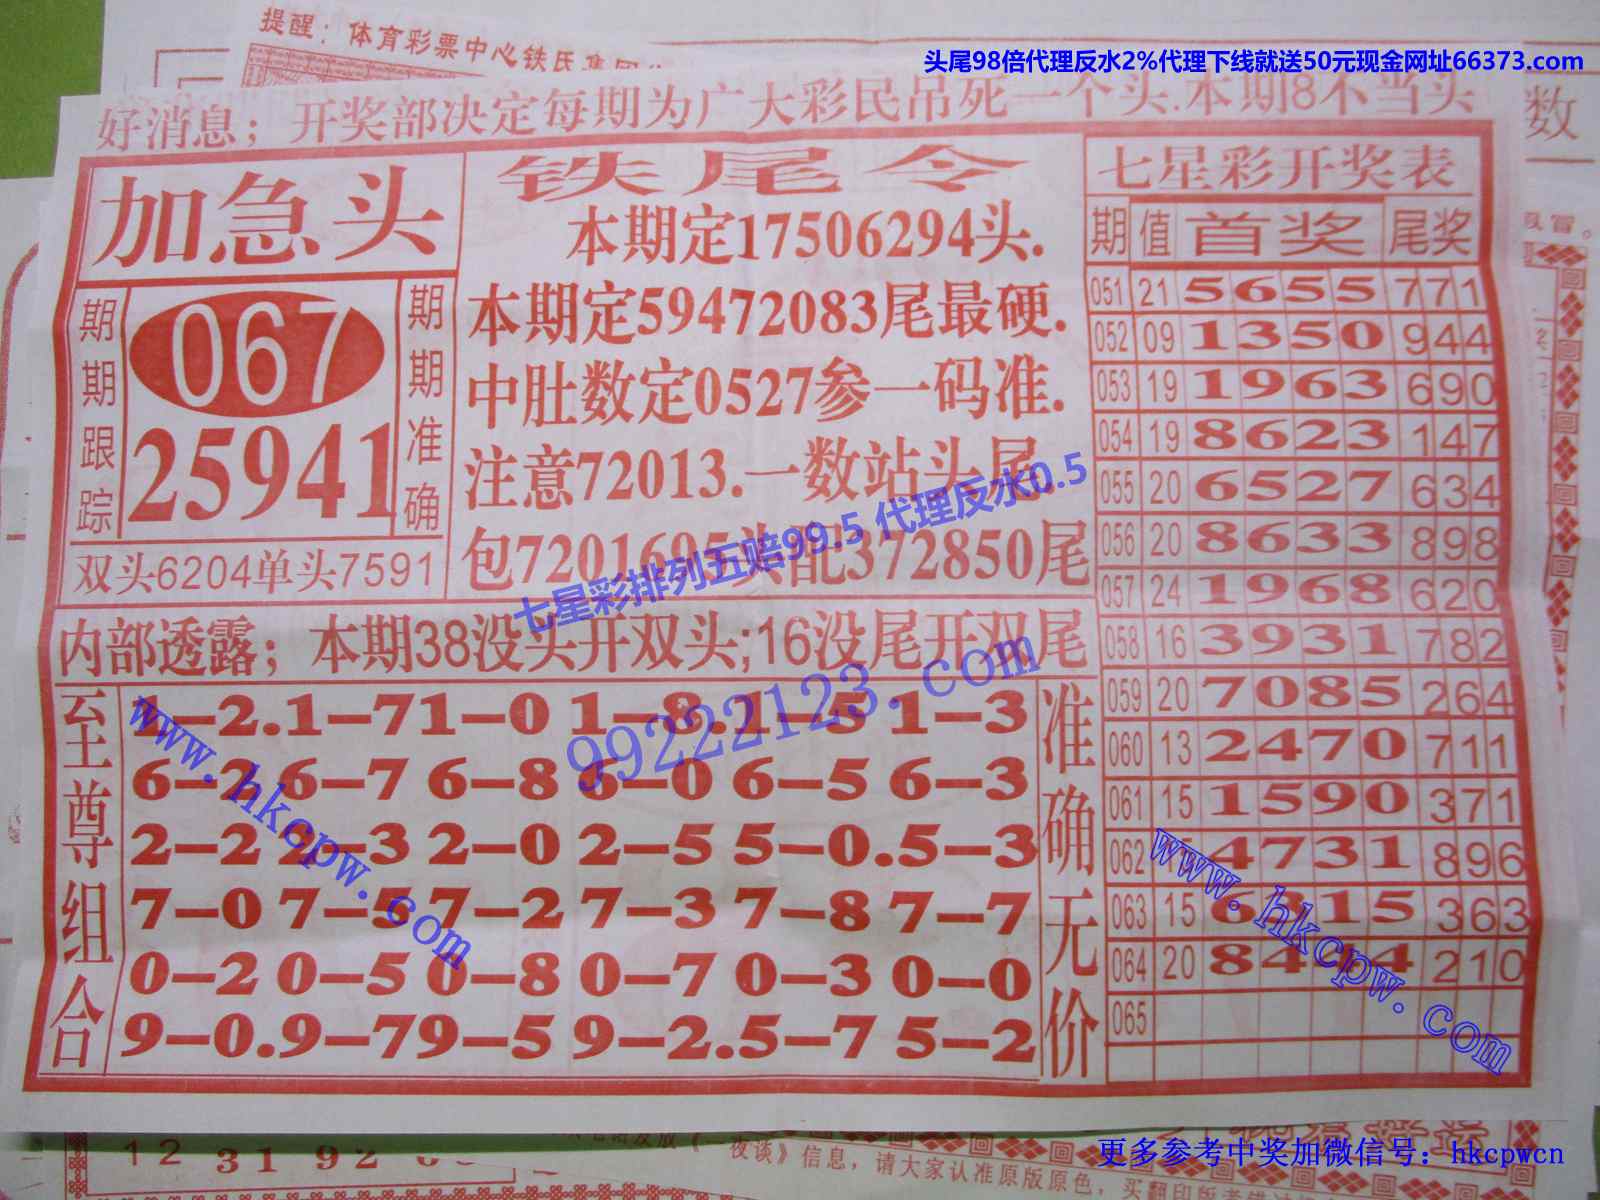 提醒：体育彩票中心铁氏集团
头尾98倍代理反水2%代理下线就送50元现金网址66373.com
好消息；开奖部决定每期为广大彩民吊死一个头.本期8不当头
数
加急头
期期跟踪
067
25941
期期准确
双头6204单头7591
铁尾令
本期定17506294头.
本期定59472083尾最硬.
中肚数定0527参一码准.
注意72013.一数站头尾.
包7201695头配372850尾
七星彩排列五赔99.5 代理反水0.5
内部透露；本期38没头开双头;16没尾开双尾
99222123.com
至尊组合
1–2.1–71–0 1–8.1–51–3
6–2 6–7 6–8 6–0 6–5 6–3
2–2 2–3 2–0 2–5 5–0.5–3
7–0 7–5 7–2 7–3 7–8 7–7
0–2 0–5 0–8 0–7 0–3 0–0
9–0.9–79–5 9–2.5–7 5–2
准确无价
www.hkcpw.com
七星彩开奖表
期 值 首奖 尾奖
051 21 5655 771
052 09 1350 944
053 19 1963 690
054 19 8623 147
055 20 6527 634
056 20 8633 898
057 24 1968 620
058 16 3931 782
059 20 7085 264
060 13 2470 711
061 15 1590 371
062 4731 896
063 15 6315 363
064 20 84 4 210
065
www.hkcpw.com
12 31 92
夜谈》信息，请大家认准原版原色，
更多参考中奖加微信号：hkcpwcn